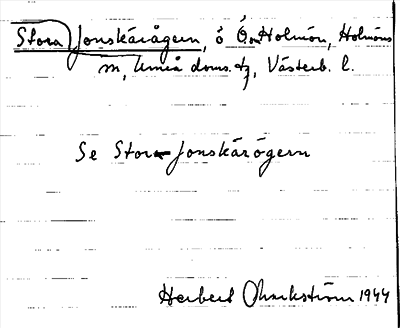 Stora Jonskärågern, ö Ö. om Holmön, Holmöns
m, Umeå doms. tg, Västerb. l.
Se Stora Jonskärögern
Herbert Markström 1944